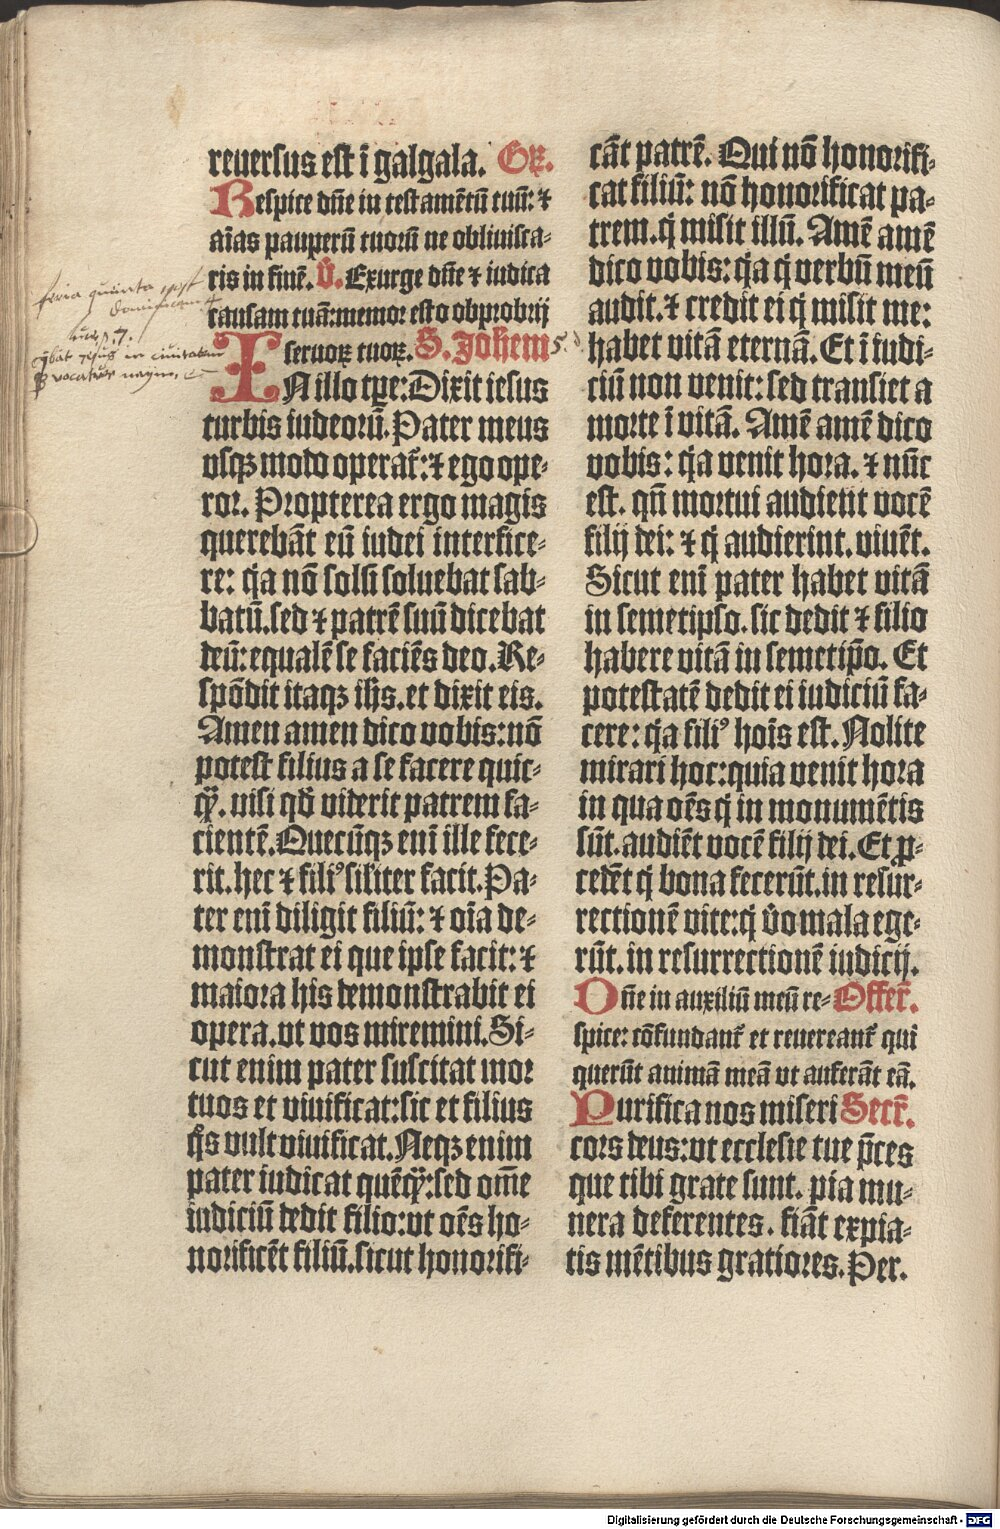 reuersus est ī galgala. Gr̄.
Respice dn̄e in testamētū tuū: ⁊
aīas pauperū tuoꝝ ne obliuisca-
ris in finē. V̄. Exurge dn̄e ⁊ iudica
causam tuā: memor esto obprobrij
seruoꝝ tuoꝝ. S. Johem 5.
IN illo tp̄e: Dixit iesus
turbis iudeorū. Pater meus
vsqꝫ modo operat̄: ⁊ ego ope-
ror. Propterea ergo magis
querebāt eū iudei interfice-
re: q̇a nō solū soluebat sab-
batū. sed ⁊ patrē suū dicebat
deū: equalē se faciēs deo. Re-
spōdit itaqꝫ ih̄s. et dixit eis.
Amen amen dico vobis: nō
potest filius a se facere quic-
qȝ̄. nisi qd̄ viderit patrem fa-
cientē. Quecūqꝫ eni ille fece-
rit. hec ⁊ filiꝰ siliter facit. Pa-
ter eni diligit filiū: ⁊ oīa de-
monstrat ei que ipse facit: ⁊
maiora his demonstrabit ei
opera. vt vos miremini. Si-
cut enim pater suscitat mor
tuos et viuificat: sic et filius
qͥs vult viuificat. Neqꝫ enim
pater iudicat quēqȝ̄: sed om̄e
iudiciū dedit filio: vt oēs ho-
norificēt filiū. sicut honorifi-
cāt patrē. Qui nō honorifi-
cat filiū: nō honorificat pa-
trem. q̇ misit illū. Amē amē
dico vobis: q̇a q̇ verbū meū
audit. ⁊ credit ei q̇ misit me:
habet vitā eternā. Et ī iudi-
ciū non venit: sed transiet a
morte ī vitā. Amē amē dico
vobis: q̇a venit hora. ⁊ nūc
est. qn̄ mortui audient vocē
filij dei: ⁊ q̇ audierint. viuēt.
Sicut eni pater habet vitā
in semetipso. sic dedit ⁊ filio
habere vitā in semetip̄o. Et
potestatē dedit ei iudiciū fa-
cere: q̇a filiꝰ hoīs est. Nolite
mirari hoc: quia venit hora
in qua oēs q̇ in monumētis
sūt. audiēt vocē filij dei. Et ꝓ-
cedēt q̇ bona fecerūt. in resur-
rectionē vite: q̇ v̊o mala ege-
rūt. in resurrectionē iudicij.
Dn̄e in auxiliū meū re- Offer̄.
spice: cōfundant̄ et reuereant̄ qui
querūt animā meā vt auferāt eā.
Purifica nos miseri Secr̄.
cors deus: vt ecclesie tue p̄ces
que tibi grate sunt. pia mu-
nera deferentes. fiāt expia-
tis mētibus gratiores. Per.
feria quinta post
Luc. 7.
ibat Jesus in ciuitatem
Digitalisierung gefördert durch die Deutsche Forschungsgemeinschaft - DFG